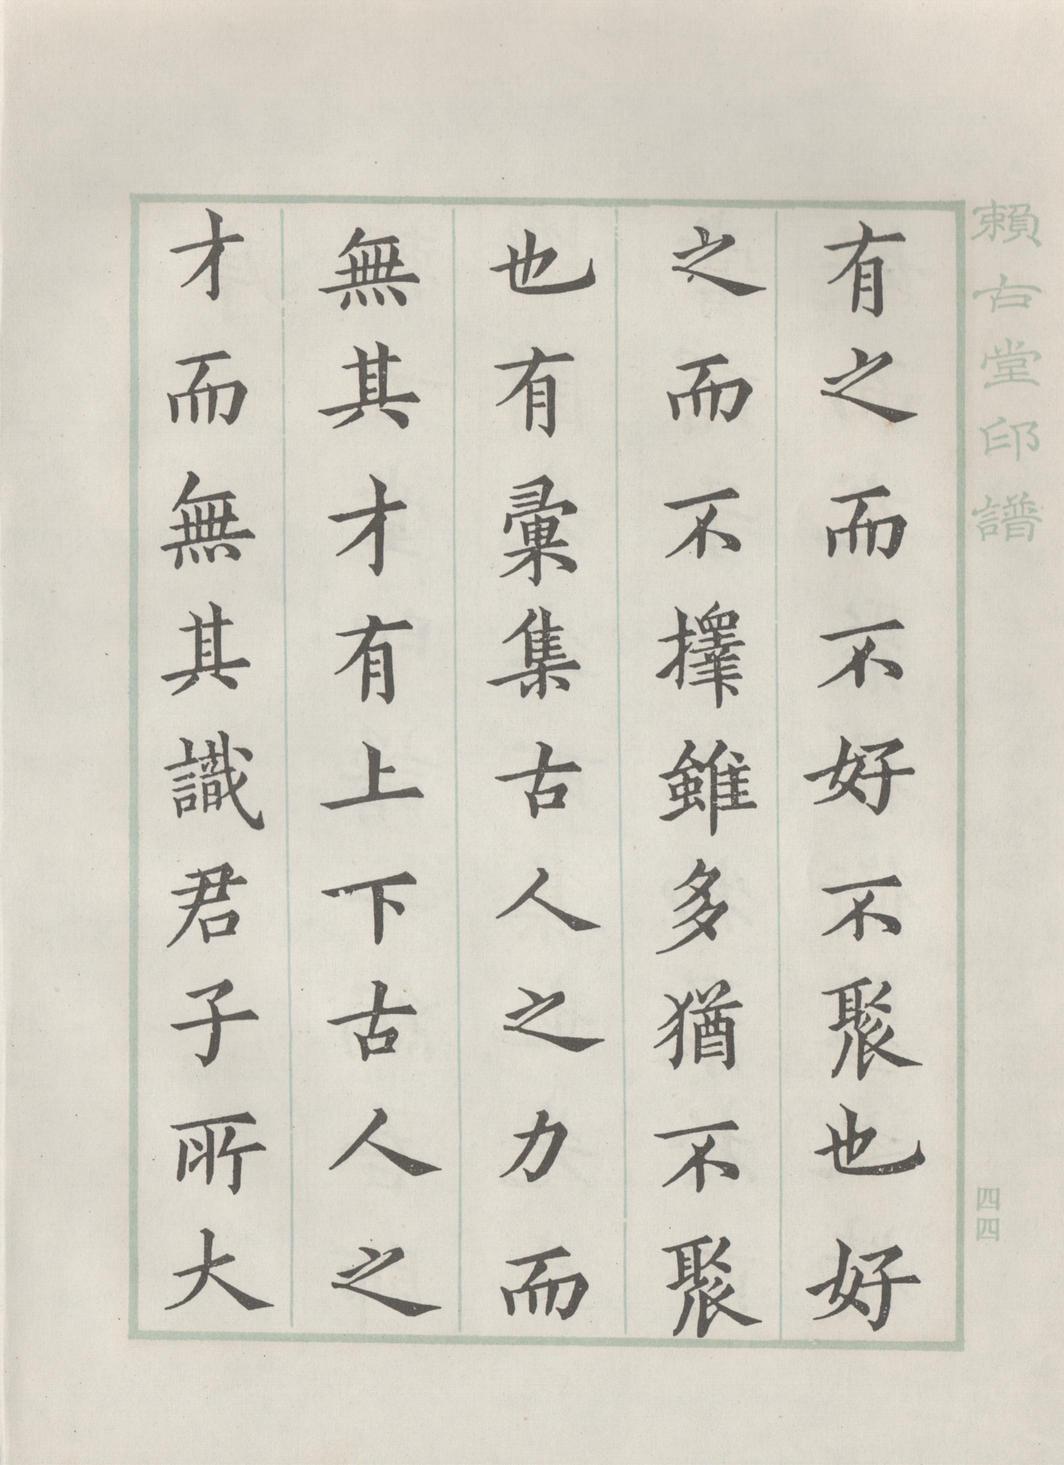 賴古堂印譜
四四
有之而不好不聚也好
之而不擇雖多猶不聚
也有彙集古人之力而
無其才有上下古人之
才而無其識君子所大